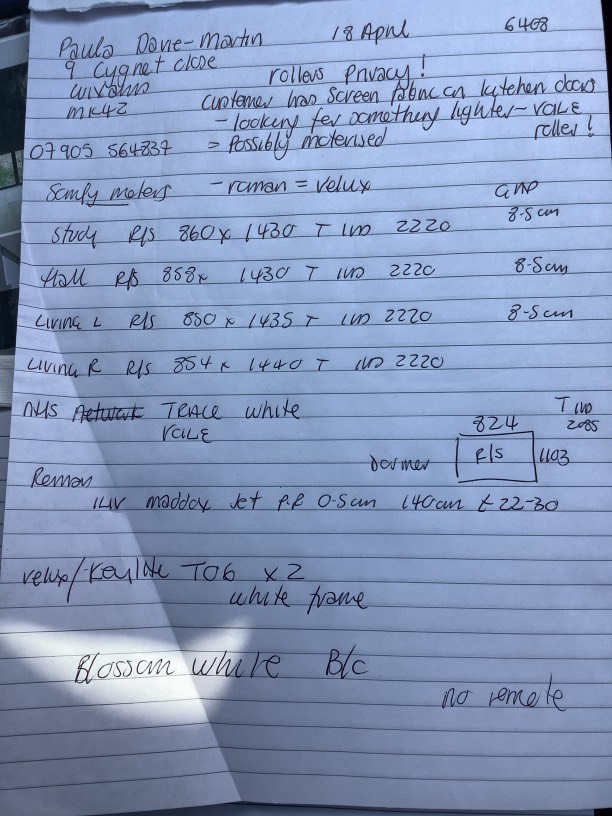 Paula Dove-Martin 18 April 6408
9 Cygnet close
wixams rollers Privacy!
MK42 customer has screen fabric on kitchen doors
- looking for something lighter - VALE roller!
07905 564837 = Possibly motorised
Somfy motors - roman = velux GWD
Study R/S 860 x 1430 T IWD 2220 8-5cm
Hall R/S 858 x 1430 T IWD 2220 8-5cm
Living L R/S 850 x 1435 T IWD 2220 8-5cm
Living R R/S 854 x 1440 T IWD 2220
Network TRACE white
VALE
824 T IWD 2085
dormer R/S 1103
Roman
maddox Jet P.R 0-5cm 140cm £22-30
velux/Keylite T06 x2
white frame
Blossom white B/c
no remote